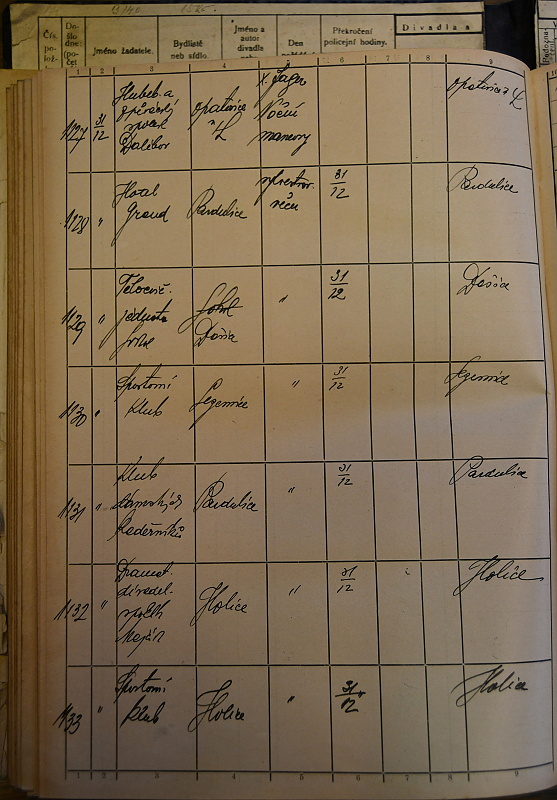 Čís.
polož-
Do-
šlo
dne:
(po-
čet
Jméno žadatele.
Bydliště
neb sídlo.
Jméno a
autor
divadla
Den
Překročení
policejní hodiny.
Divadla a
1 2 3 4 5 6 7 8 9
1127 31/12 Hudeb. a
spolek
Dalibor
Opatovice
n L
X. Jäger
Noční
manevry
Opatovice n L
1128 " Hotel
Grand
Pardubice
silvestrov.
31/12
Pardubice
1129 " Tělocvič.
jednota
Sokol
Dašice
"
31/12
Dašice
1130 " Sportovní
Klub
"
31/12
1131 " Klub
dámských
Kadeřníků
Pardubice
"
31/12
Pardubice
1132 " Dramat.
divadel.
spolek
Holice
"
31/12
Holice
1133 " Sportovní
klub
Holice
"
31/12
Holice
1 2 3 4 5 6 7 8 9